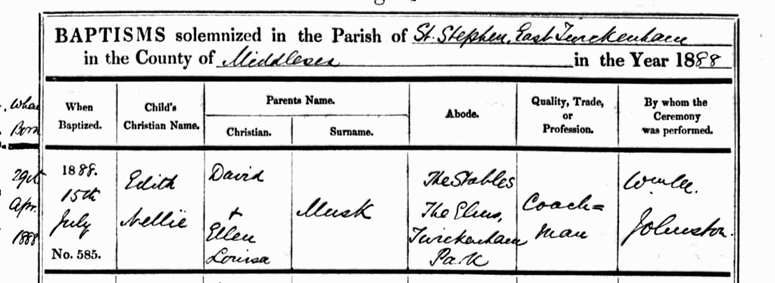 BAPTISMS solemnized in the Parish of St. Stephen, East Twickenham
in the County of Middlesex in the Year 1888
When
Born
When
Baptized.
Child's
Christian Name.
Parents Name.
Christian.
Surname.
Abode.
Quality, Trade,
or
Profession.
By whom the
Ceremony
was performed.
29th
Apr.
1888
1888.
15th
July
No. 585.
Edith
Nellie
David
+
Ellen
Louisa
Musk
The Stables
The Elms,
Twickenham
Park
Coach=
man
Johnston.